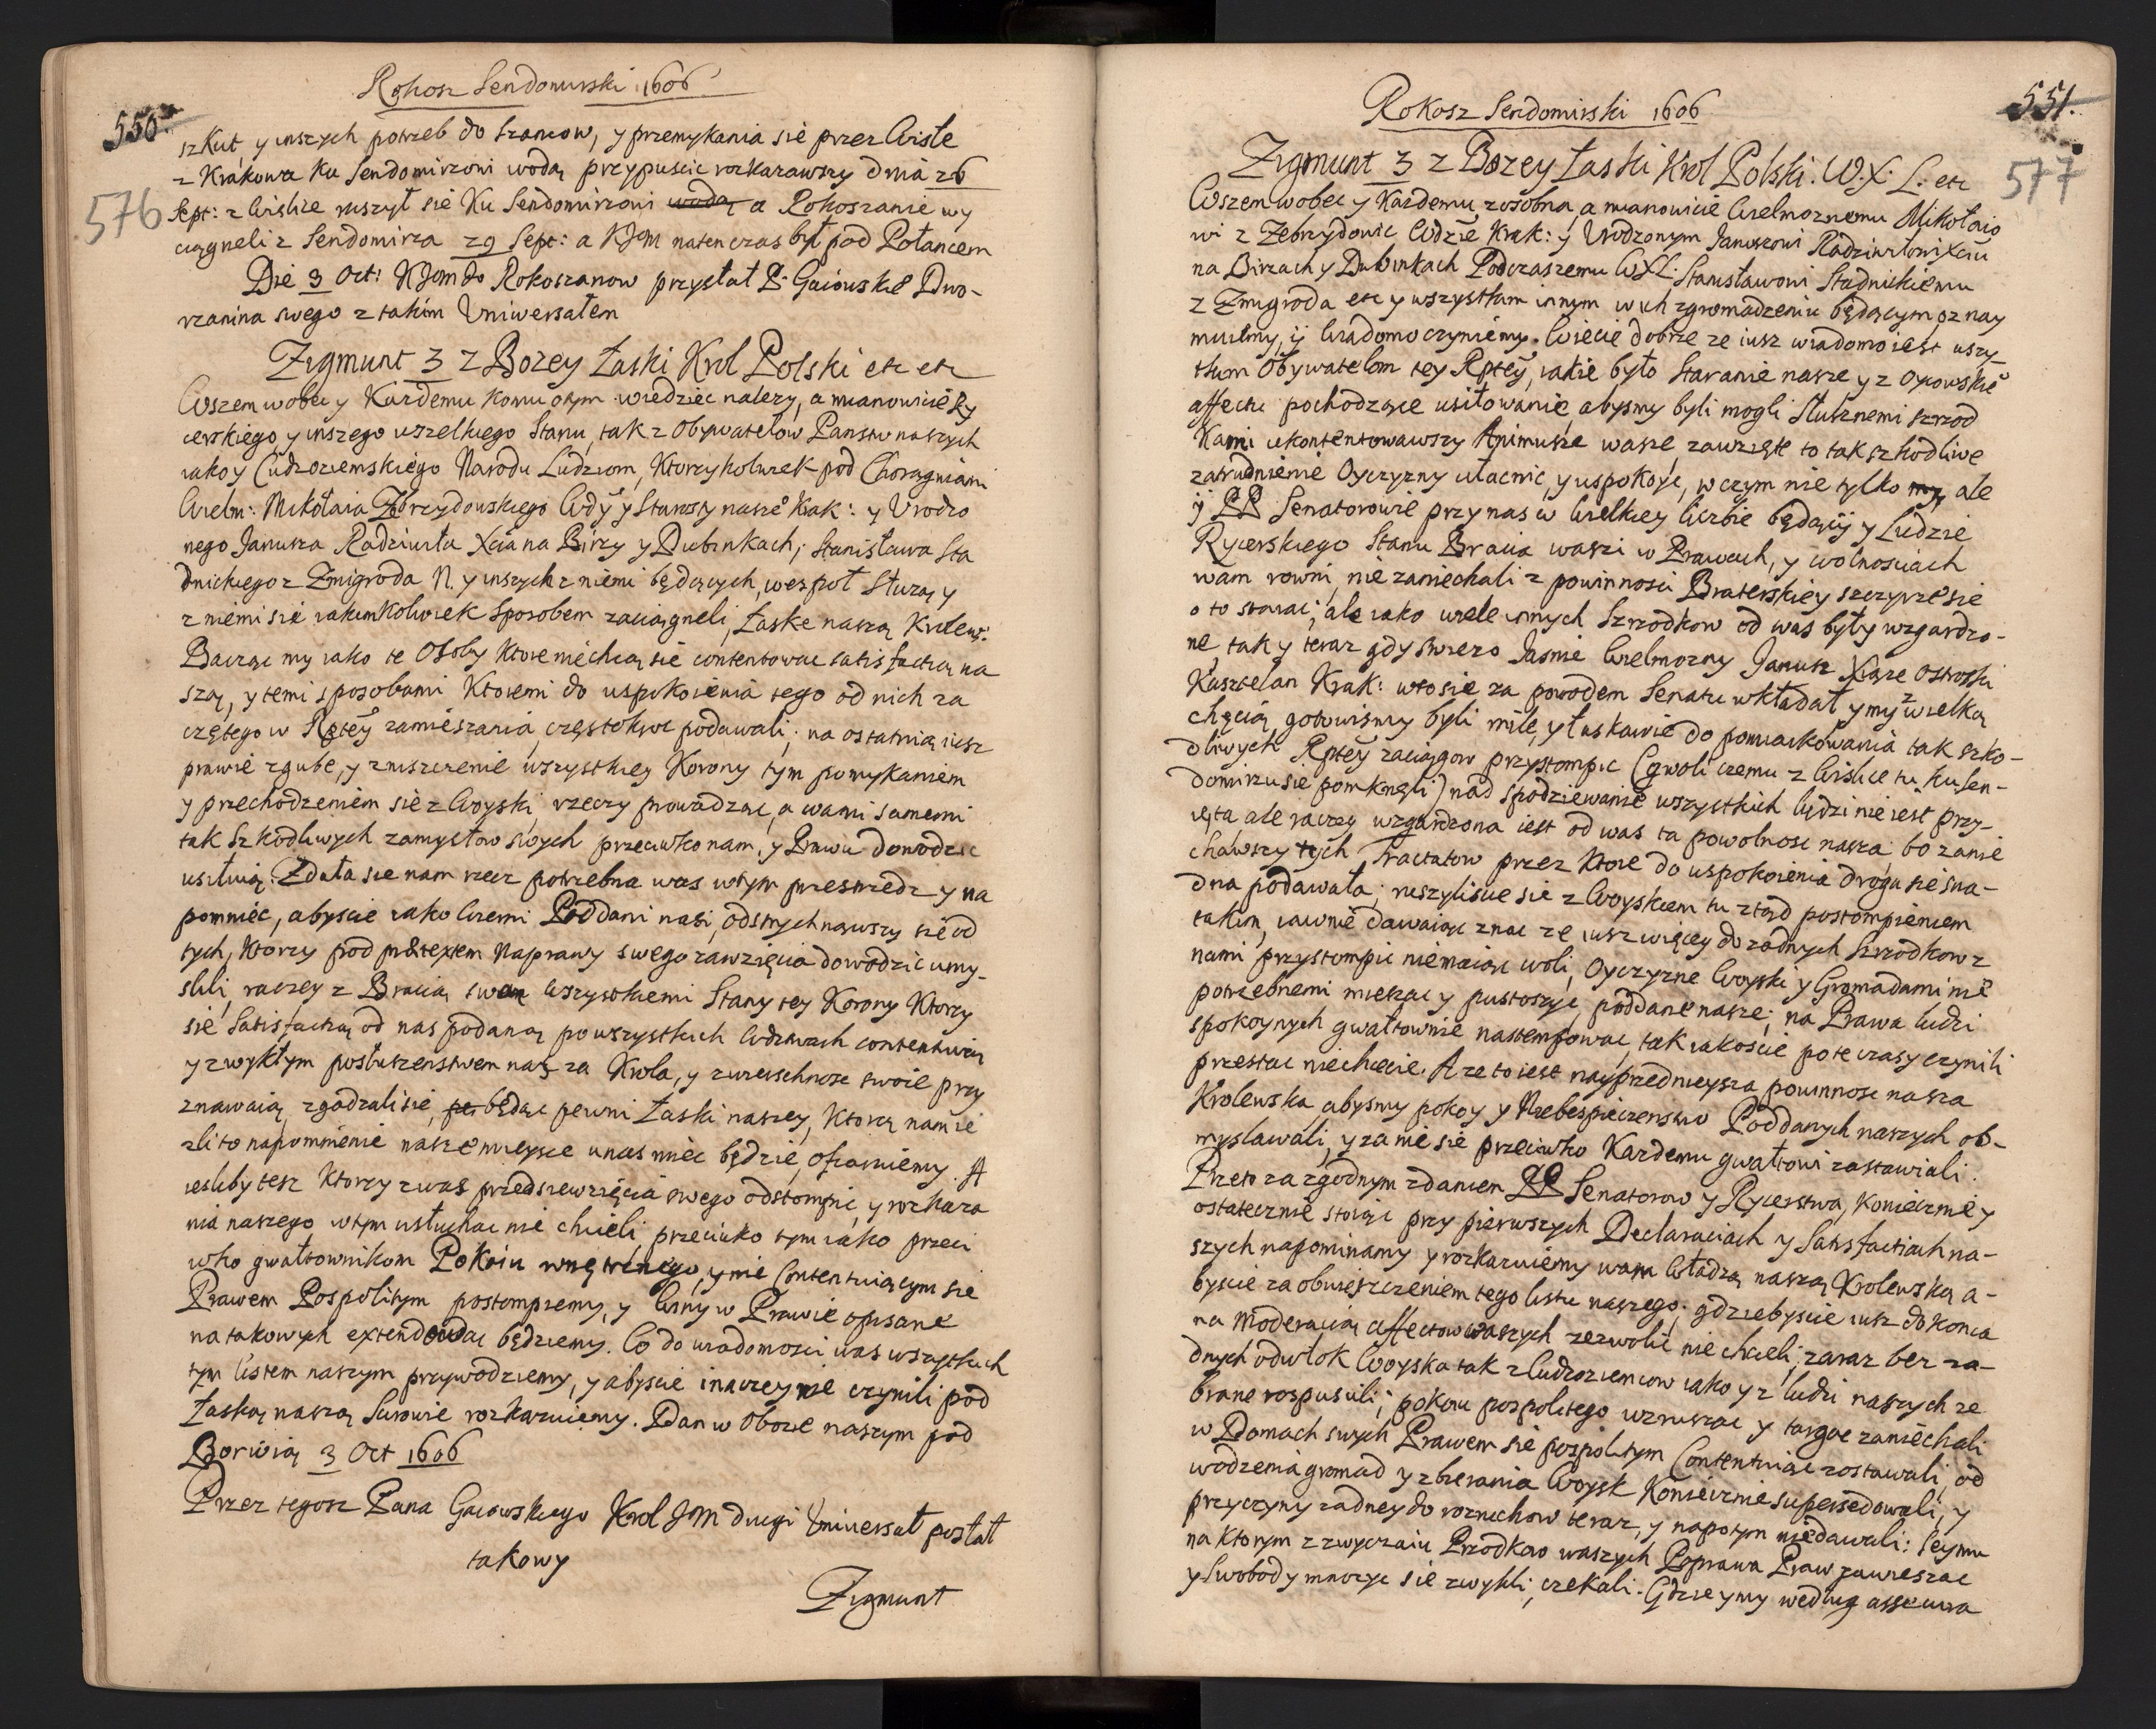 Rokosz Sendomirski 1606
550.
576
szkut y inszych potrzeb do szancow, y przemykania się przez Wisłe
z Krakowa ku Sendomirzowi wodą przypuścic rozkazawszy dnia 26
Sept: z Wislice ruszył się Ku Sendomirzowi wodą a Rokoszanie wy
ciągneli z Sendomirza 29 Sept: a KJM natenczas był pod Połancem
Die 3 Oct: KJom do Rokoszanow przysłał P. Gaiowskie Dwo-
rzanina swego z takim Uniwersałem
Zigmunt 3 z Bozey Łaski Krol Polski etc etc
Wszem wobec y Kazdemu komu otym wiedziec nalezy, a mianowicie Ry
cerskiego y inszego wszelkiego Stanu, tak z Obywatelow Panstw naszych
iako y Cudzoziemskiego Narodu Ludziom, Ktorzykolwiek pod Chorągwiami
Wielm: Mikołaia Zebrzydowskiego Wdy y Starosty nasze Krak: y Urodzo
nego Janusza Radziwiła Xcia na Birzy y Dubinkach, Stanisława Sta
dnickiego z Zmigroda N. y inszych z niemi będących, wespoł słuzą y
z niemi sie iakimkolwiek sposobem zaciągneli, Łaske naszą Krolews:
Bacząc my iako te Osoby ktore niechcą się contentowac satisfactią na
szą, y temi sposobami Ktoremi do uspokoienia tego od nich za
czętego w Rptey zamieszania częstokroc podawali, na ostatnią iusz
prawie zgube, y zniszczenie wszystkiey Korony tym pomykaniem
y przechodzeniem się z Woyski, rzeczy prowadząc, a wami samemi
tak szkodliwych zamysłow swych przeciwko nam, y Prawu dowodzic
usiłuią. Zdała się nam rzecz potrzebna was wtym przestrzedz y na
pomniec, abyscie iako Wierni Poddani nasi, odstrychnąwszy się od
tych, Ktorzy pod pretextem Naprawy swego zawzięcia dowodzic umy-
slili, raczey z Bracią swą Wszystkiemi Stany tey Korony Ktorzy
się Satisfactią od nas podaną po wszystkich Wdztwach contentuią
y zwykłym posłuszenstwem nas za Krola, y zwierzchnosc swoie przy
znawaią zgadzali się, pe będąc pewni Łaski naszey, Ktorą nam ie
zli to napomnienie nasze mieysce unas miec będzie, ofiaruiemy. A
iesliby tesz Ktorzy zwas przedsiewzięcia swego odstompic, y rozkaza
nia naszego wtym usłuchac nie chcieli przeciwko tym iako przeci
wko gwałtownikom Pokoiu wnętrznego, y nie Contentuiącym się
Prawem Pospolitym postompiemy, y Winy w Prawie opisane
na takowych extendowac będziemy. Co do wiadomosci was wszytkich
tym listem naszym przywodziemy, y abyscie inaczey nie czynili pod
Łaską naszą Surowie rozkazuiemy. Dan w Obozie naszym pod
Borwią 3 Oct 1606
Przez tegosz Pana Gaiowskiego Krol JM drugi Uniwersał posłał
takowy
Zigmunt
Rokosz Sendomirski 1606
551.
577
Zigmunt 3 z Bozey Łaski Krol Polski. W.X. L. etc
Wszem wobec y Kazdemu zosobna, a mianowicie Wielmoznemu Mikołaio
wi z Zebrzydowic Wdzie Krak: y Urodzonym Januszowi Radziwiłowi Xciu
na Birzach y Dubinkach Podczaszemu WXL. Stanisławowi Stadnickiemu
z Zmigroda etc y wszystkim innym wich zgromadzeniu będącym, oznay
muiemy, ij Wiadomo czyniemy. Wiecie dobrze ze iusz wiadomo iest wszy-
tkim Obywatelom tey Rptey, iakie było Staranie nasze y z Oycowskie
affectu pochodzące usiłowanie, abysmy byli mogli słusznemi szrzod
kami ukontentowawszy Animusze wasze zawzięte to tak szkodliwe
zatrudnienie Oyczyzny ułacnic, y uspokoyc, w czym nie tylko my ale
ij PP Senatorowie przy nas w Wielkiey liczbie będącij y Ludzie
Rycerskiego Stanu Bracia waszi w Prawach, y wolnosciach
wam rowni, nie zaniechali z powinnosci Braterskiey szczyrze sie
o to starac; ale iako wiele innych Szrzodkow od was były wzgardzo-
ne, tak y teraz gdy swiezo Jasnie Wielmozny Janusz Xiąze Ostroski
Kasztelan Krak: wto się za powodem Senatu wkładał y my z wielką
chęcią gotowismy byli mile, y łaskawie do pomiarkowania tak szko-
dliwych Rptey zaciągow przystompic (gwoli czemu z Wislice tu ku Sen-
domirzu sie pomknęli) nad spodziewanie wszystkich ludzi nie iest przy-
ięta ale raczey wzgardzona iest od was ta powolnosc nasza: bo zanie
chawszy tych Tractatow przez ktore do uspokoienia droga się sna-
dna podawała; ruszyliscie się z Woyskiem tu ztąd postompieniem
takim, iawnie dawaiąc znac ze iusz więcey do zadnych Szrzodkow z
nami przystompic niemaiąc woli, Oyczyzne Woyski y Gromadami nie
potrzebnemi mieszac y pustoszyc, poddane nasze; na Prawa ludzi
spokoynych gwałtownie nastempowac, tak iakoscie po te czasy czynili
przestac niechcecie. A ze to iest nayprzednieysza powinnosc nasza
Krolewska, abysmy pokoy y Niebespieczenstwo Poddanych naszych ob-
myslawali, y za nie się przeciwko Kazdemu gwałtowi zastawiali.
Przeto za zgodnym zdaniem PP Senatorow y Rycerstwa, koniecznie y
ostatecznie stoiąc przy pierwszych Declaraciach y Satisfactiach na-
szych napominamy y rozkazuiemy wam Władzą naszą Krolewską a-
byscie za obwieszczeniem tego listu naszego; gdziebyscie iusz do konca
na Moderacią affectow waszych zezwolic nie chcieli, zaraz bez za-
dnych odwłok Woyska tak z Cudzoziemcow iako y z ludzi naszych ze
brane rospuscili; pokoiu pospolitego wzruszac y targac zaniechali
w Domach swych Prawem się pospolitym Contentuiąc zostawali, od
wodzenia gromad y zbierania Woysk koniecznie supersedowali, y
przyczyny zadney do rozruchow teraz, y napotym niedawali: Seymu
na ktorym z zwyczaiu Przodkow waszych Poprawa Praw zawieszac
y Swobody mnozyc się zwykli, czekali. Gdzie y my według assecura